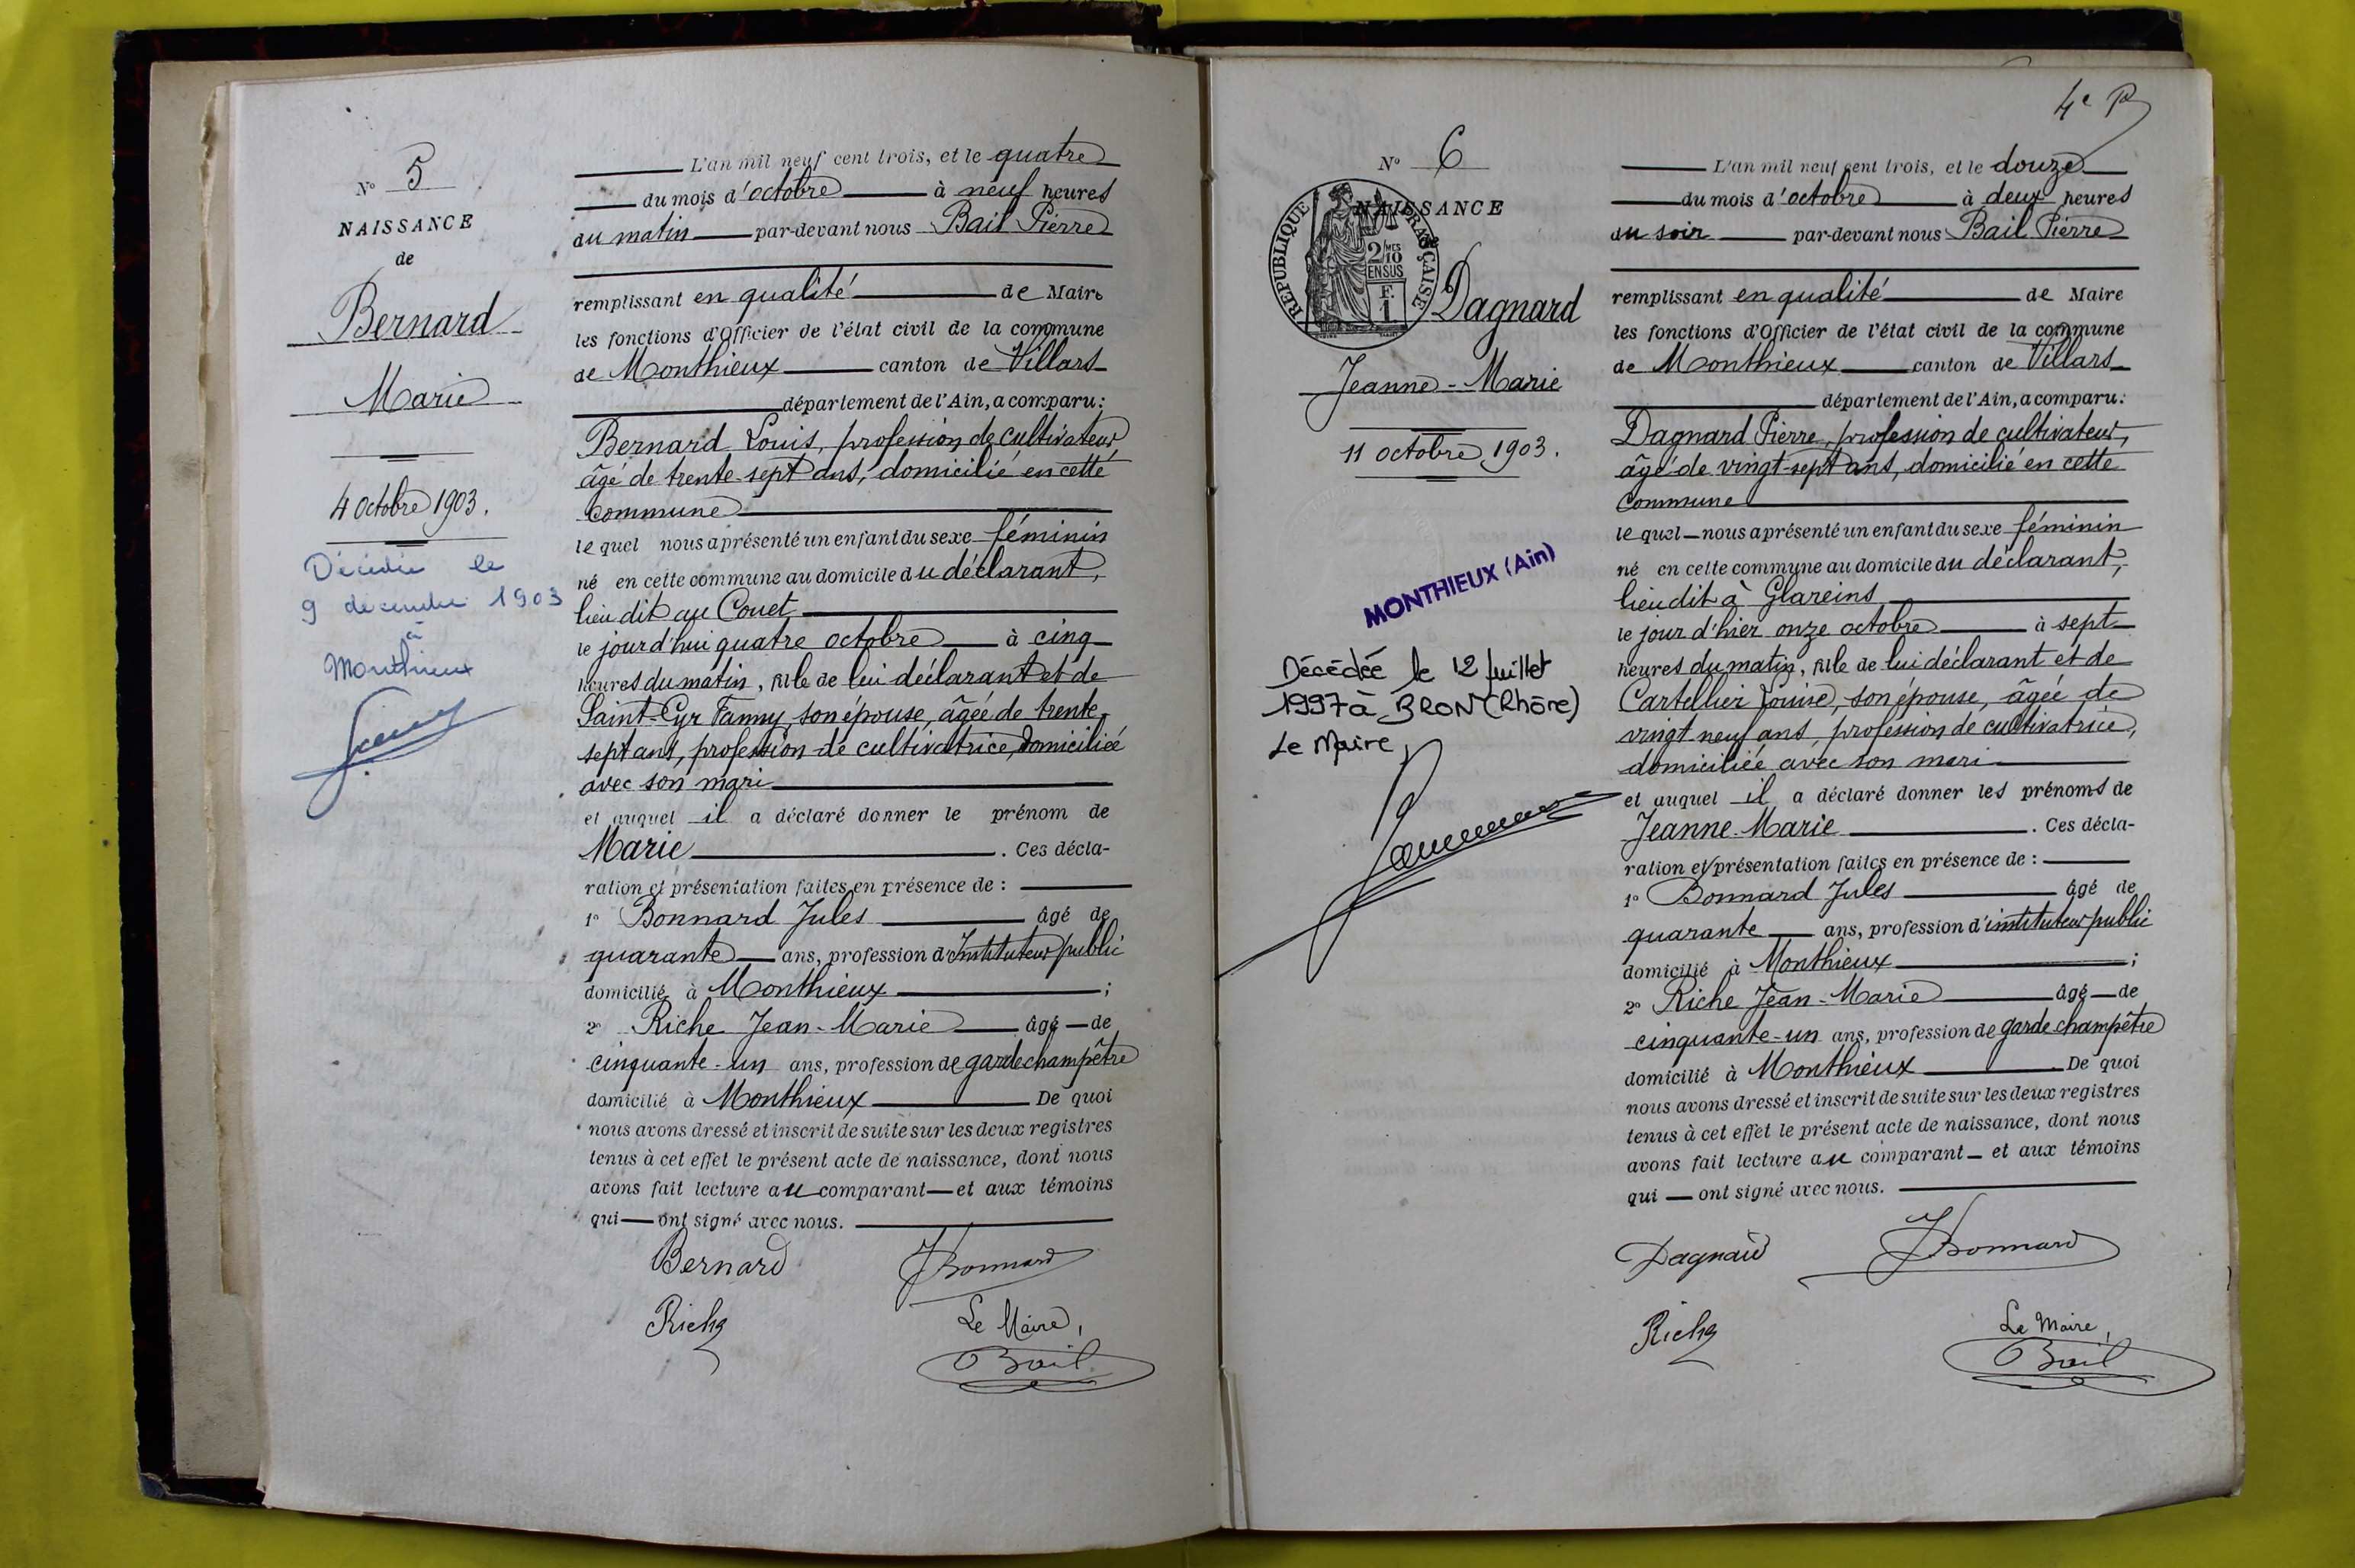 N° 5
NAISSANCE
de
Bernard
Marie
4 Octobre 1903.
Décédée le
9 décembre 1903
à
Monthieux
L'an mil neuf cent trois, et le quatre
du mois d'octobre à neuf heures
du matin par-devant nous Bail Pierre
remplissant en qualité de Maire
les fonctions d'Officier de l'état civil de la commune
de Monthieux canton de Villars
département de l'Ain, a comparu:
Bernard Louis, profession de cultivateur
âgé de trente-sept ans, domicilié en cette
commune
le quel nous a présenté un enfant du sexe féminin
né en cette commune au domicile du déclarant,
lieu dit au Couet
le jourd'hui quatre octobre à cinq
heures du matin, fille de lui déclarant et de
Saint-Cyr Fanny, son épouse, âgée de trente-
sept ans, profession de cultivatrice, domiciliée
avec son mari
et auquel il a déclaré donner le prénom de
Marie. Ces décla-
ration et présentation faites en présence de :
1° Bonnard Jules âgé de
quarante ans, profession d'Instituteur public
domicilié à Monthieux ;
2° Riche Jean-Marie âgé de
cinquante-un ans, profession de garde champêtre
domicilié à Monthieux De quoi
nous avons dressé et inscrit de suite sur les deux registres
tenus à cet effet le présent acte de naissance, dont nous
avons fait lecture au comparant et aux témoins
qui ont signé avec nous.
Bernard JBonnard
Riche Le Maire,
Bail
4e
N° 6
NAISSANCE
REPUBLIQUE FRANÇAISE
2 MES
10
EN SUS
F.
1
Dagnard
Jeanne-Marie
11 octobre 1903.
MONTHIEUX (Ain)
Décédée le 12 Juillet
1997 à BRON (Rhône)
Le Maire,
L'an mil neuf cent trois, et le douze
du mois d'octobre à deux heures
du soir par-devant nous Bail Pierre
remplissant en qualité de Maire
les fonctions d'Officier de l'état civil de la commune
de Monthieux canton de Villars
département de l'Ain, a comparu:
Dagnard Pierre, profession de cultivateur,
âgé de vingt-sept ans, domicilié en cette
commune
le quel nous a présenté un enfant du sexe féminin
né en cette commune au domicile du déclarant,
lieu dit à Glareins
le jour d'hier onze octobre à sept
heures du matin, fille de lui déclarant et de
Cartellier Louise, son épouse, âgée de
vingt neuf ans, profession de cultivatrice,
domiciliée avec son mari
et auquel il a déclaré donner les prénoms de
Jeanne-Marie. Ces décla-
ration et présentation faites en présence de :
1° Bonnard Jules âgé de
quarante ans, profession d'instituteur public
domicilié à Monthieux ;
2° Riche Jean-Marie âgé de
cinquante-un ans, profession de garde champêtre
domicilié à Monthieux De quoi
nous avons dressé et inscrit de suite sur les deux registres
tenus à cet effet le présent acte de naissance, dont nous
avons fait lecture au comparant et aux témoins
qui ont signé avec nous.
Dagnard JBonnard
Riche Le Maire,
Bail